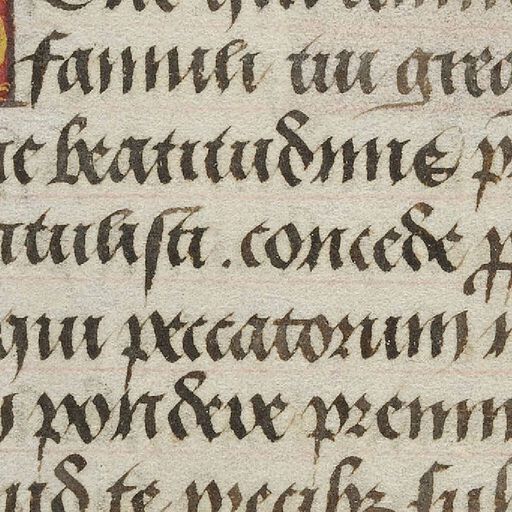 famuli tui greg
beatitudinis p
ntulisti . concede p
qui peccatorum n
pondere premim
ud te precibz sub